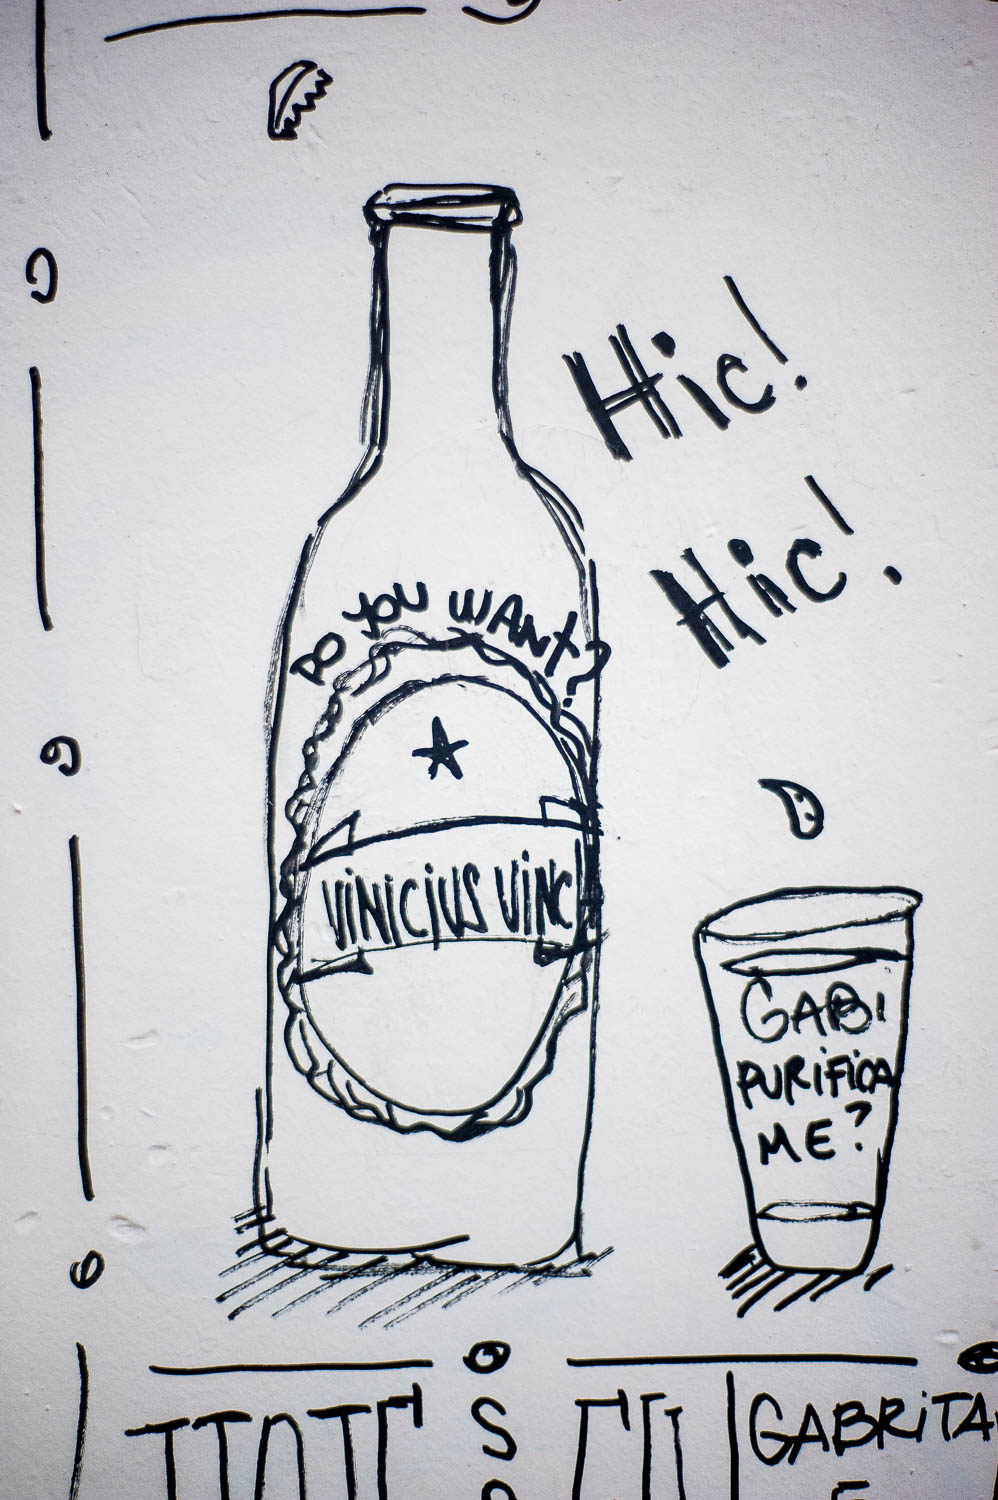 Hic!
Hic!
DO YOU WANT?
VINICIUS VINC
GABI
PURIFICA
ME?
GABRITA